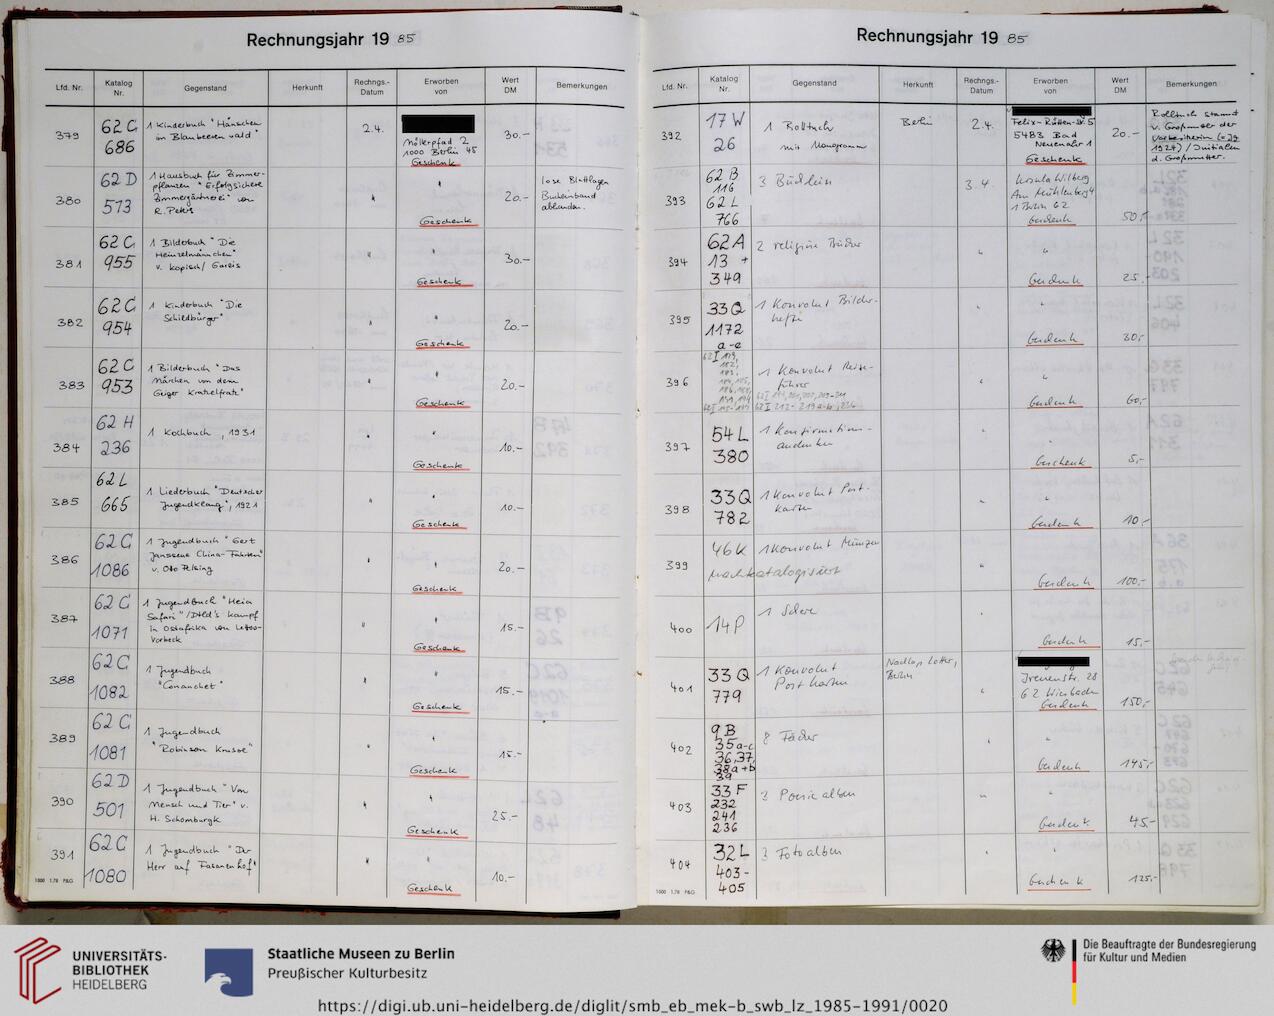 Rechnungsjahr 19 85
Lfd. Nr. Katalog Nr. Gegenstand Herkunft Rechngs.-Datum Erworben von Wert DM Bemerkungen
379 62 C 686 1 Kinderbuch "Hänschen im Blaubeerenwald" 2.4. Möllerpfad 2 1000 Berlin 45 Geschenk 30.-
380 62 D 513 1 Hausbuch für Zimmerpflanzen "Erfolgsichere Zimmergärtnerei" von R. Peters " " Geschenk 20.- lose Blattlagen Bucheinband
381 62 C 955 1 Bilderbuch "Die Heinzelmännchen" v. Kopisch/ Gareis " " Geschenk 30.-
382 62 C 954 1 Kinderbuch "Die Schildbürger" " " Geschenk 20.-
383 62 C 953 1 Bilderbuch "Das Märchen von dem Geiger " " Geschenk 20.-
384 62 H 236 1 Kochbuch, 1931 " " Geschenk 10.-
385 62 L 665 1 Liederbuch "Deutscher Jugendklang", 1921 " " Geschenk 10.-
386 62 C 1086 1 Jugendbuch "Gert Janssens China-Fahrten" v. Otto " " Geschenk 20.-
387 62 C 1071 1 Jugendbuch "Heia Safari"/Dtld's Kampf in Ostafrika von Lettow-Vorbeck " " Geschenk 15.-
388 62 C 1082 1 Jugendbuch "Conanchet" " " Geschenk 15.-
389 62 C 1081 1 Jugendbuch "Robinson Krusoe" " " Geschenk 15.-
390 62 D 501 1 Jugendbuch "Von Mensch und Tier" v. H. Schomburgk " " Geschenk 25.-
391 62 C 1080 1 Jugendbuch "Der Herr auf Fasanenhof" " " Geschenk 10.-
1000 1.78 P&G
Rechnungsjahr 19 85
Lfd. Nr. Katalog Nr. Gegenstand Herkunft Rechngs.-Datum Erworben von Wert DM Bemerkungen
392 17 W 26 1 Rolltuch mit Monogramm Berlin 2.4. Felix-Rütten-Str. 5 5483 Bad Neuenahr 1 Geschenk 20.- Rolltuch stammt v. Großmutter der Vorbesitzerin 1924) / Initialen d. Großmutter.
393 62 B 116 62 L 766 3 Büchlein 3.4. Ursula Wilberg Am Mühlenberg 4 1 Berlin 62 Geschenk 50,-
394 62 A 13 + 349 2 religiöse Bücher " " Geschenk 25.-
395 33 Q 1172 a-e 1 Konvolut Bilderhefte " " Geschenk 30,-
396 1 Konvolut Reiseführer " " Geschenk 60,-
397 54 L 380 1 Konfirmationsandenken " " Geschenk 5,-
398 33 Q 782 1 Konvolut Postkarten " " Geschenk 10,-
399 46 K 1 Konvolut Münzen nachkatalogisiert " Geschenk 100,-
400 14 P 1 Schere " Geschenk 15,-
401 33 Q 779 1 Konvolut Postkarten Nachlass Lotter, Berlin " Irenenstr. 28 62 Wiesbaden Geschenk 150,-
402 9 B 35 a-c 36, 37, 38 a+b 39 8 Fächer " " Geschenk 145,-
403 33 F 232 241 236 3 Poesiealben " " Geschenk 45.-
404 32 L 403-405 3 Fotoalben " " Geschenk 125.-
1000 1.78 P&G
UNIVERSITÄTS-
BIBLIOTHEK
HEIDELBERG
Staatliche Museen zu Berlin
Preußischer Kulturbesitz
Die Beauftragte der Bundesregierung
für Kultur und Medien
https://digi.ub.uni-heidelberg.de/diglit/smb_eb_mek-b_swb_lz_1985-1991/0020